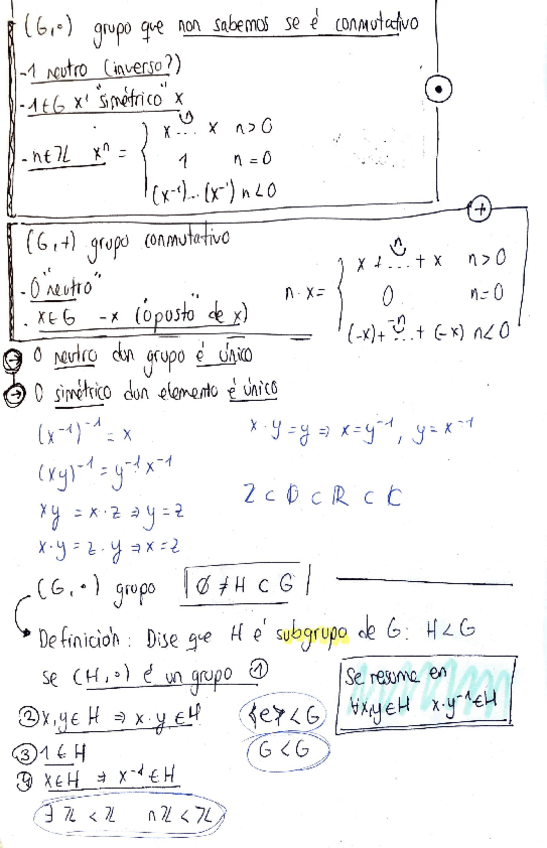 (G,∘) grupo que non sabemos se é conmutativo
-1 neutro (inverso?)
-1∈G x' "simétrico" x
-n∈ℤ xⁿ = { x ... x n>0
1 n=0
(x⁻¹)...(x⁻¹) n<0
•
+
(G,+) grupo conmutativo
-0 "neutro"
. x∈G -x ("oposto" de x)
n·x= { x + ... + x n>0
n
0 n=0
(-x)+ ... + (-x) n<0
-n
→ O neutro dun grupo é único
→ O simétrico dun elemento é único
(x⁻¹)⁻¹ = x
(xy)⁻¹ = y⁻¹x⁻¹
xy = x·z ⇒ y = z
x·y = z·y ⇒ x = z
x·y = y ⇒ x = y⁻¹, y = x⁻¹
Z ⊂ Q ⊂ R ⊂ C
(G,∘) grupo ∅ ≠ H ⊂ G
Definición: Dise que H é subgrupo de G: H<G
se (H,∘) é un grupo ①
② x,y∈H ⇒ x·y∈H
③ 1∈H
④ x∈H ⇒ x⁻¹∈H
{e}<G
G<G
Se resume en
∀x,y∈H x·y⁻¹∈H
3ℤ < ℤ nℤ < ℤ